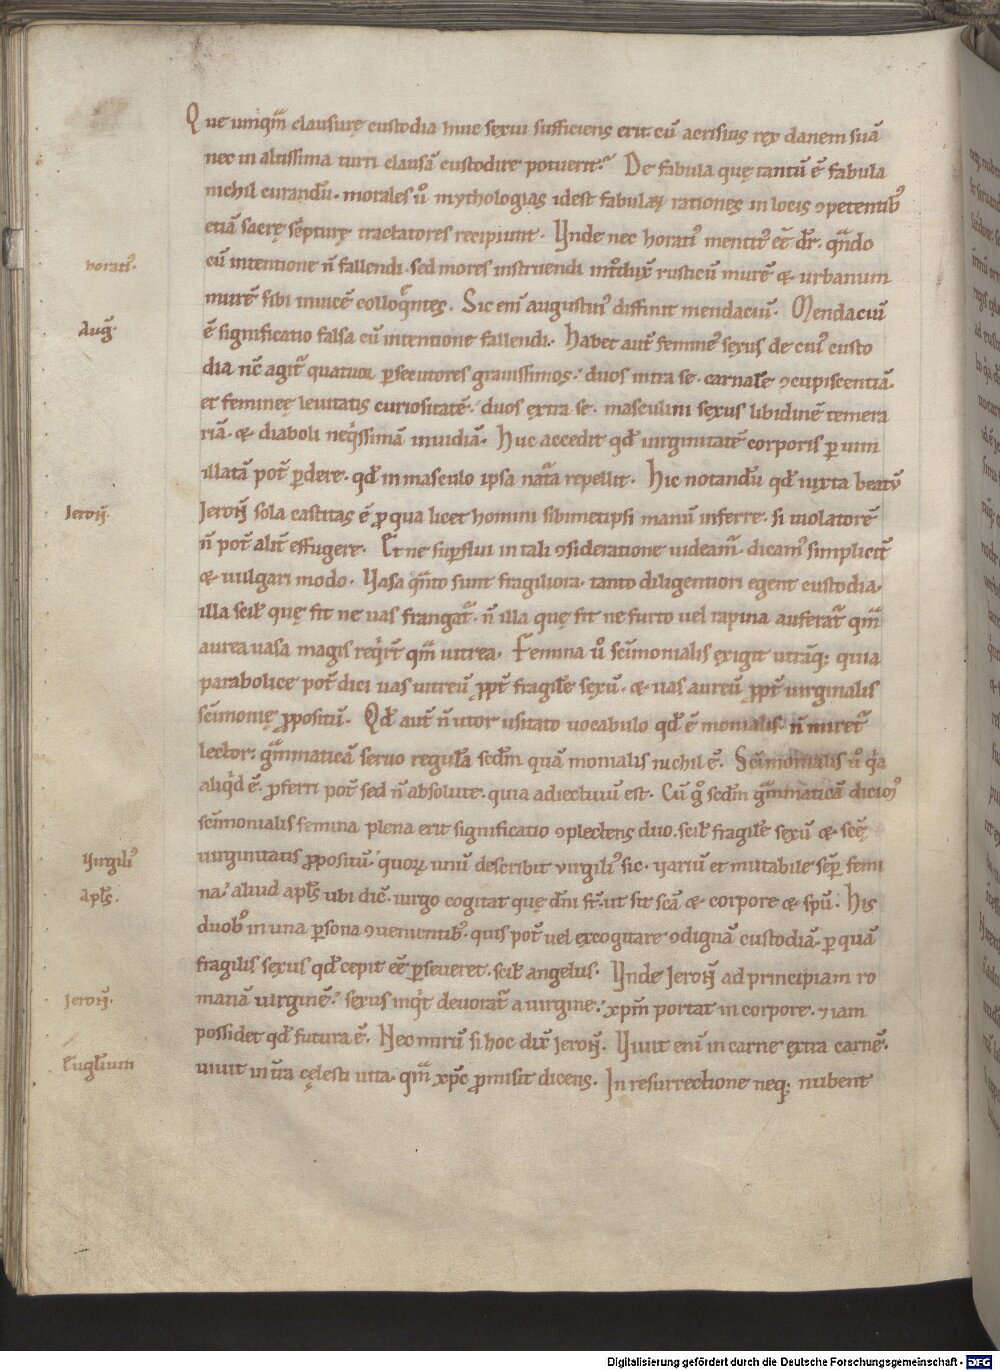 Que unq̄m clausurę custodia huic sęxui sufficiens erit cū acrisius ręx danem suā
nec in altissima turri clausā custodire potuerit? De fabula quę tantū ē fabula
nichil curandū. morales ů mythologias idest fabulaꝝ rationes in locis ꝯpetentibꝰ
etiā sacrę sc̄pturę tractatores recipiunt. Vnde nec horatiꝰ mentitꝰ ēē dr̄. q̄ndo
horatiꝰ.
cū intentione n̄ fallendi. sed mores instruendi int̊dux̄ rusticū murē & urbanum
murē sibi inuicē colloq̄ntes. Sic eni augustinꝰ diffinit mendaciū. Mendaciū
Auḡ.
ē significatio falsa cū intentione fallendi. Habet aut̄ feminēꝰ sęxus de cuiꝰ custo
dia nc̄ agit᷑ quatuor ꝑsecutores grauissimos. duos intra se. carnalē ꝯcupiscentiā.
et feminęę leuitatis curiositatē. duos ęxtra se. masculini sęxus libidinē temera
riā. & diaboli neq̇ssimā inuidiā. Huc accedit qd̄ uirginitatē corporis ꝑ uim
illatā pot̄ ꝑdere. qd̄ in masculo ipsa nat᷑a repellit. Hic notandū qd̄ iuxta beatū
Ieroñ.
Ieroñ sola castitas ē ꝓ qua licet homini sibimetipsi manū inferre. si uiolatorē
n̄ pot̄ alit̄ effugere. Et ne supflui in tali ꝯsideratione uideam᷑. dicamꝰ simplicit̄
& uulgari modo. Vasa q̄nto sunt fragiliora. tanto diligentiori egent custodia.
illa scil̄ quę fit ne uas frangat᷑. n̄ illa quę fit ne furto uel rapina auferat᷑ qm̄
aurea uasa magis req̇rt̄ qm̄ uitrea. Femina ů sc̄imonialis ęxigit utrāq; quia
parabolice pot̄ dici uas uitreū ꝓpt̄ fragilē sęxū. & uas aureū ꝓpt̄ uirginalis
sc̄imonię ꝓpositū. Qd̄ aut̄ n̄ utor usitato uocabulo qd̄ ē monialis. n̄ miret᷑
lector; g᷑mmaticā seruo regulā scdm̄ quā monialis nichil ē. Sc̄imonialis ů q̇a
aliq̇d ē. ꝓferri pot̄ sed n̄ absolute. quia adiectiuū est. Cū g̊ scdm̄ g᷑mmaticā diciꝰ
sc̄imonialis femina plena erit significatio ꝯplectens duo. scil̄ fragilē sęxū & scę̄
Virgiliꝰ
uirginitatis ꝓpositū. quoꝝ unū describit virgiliꝰ sic. variū et mutabile sēꝑ femi
apl̄s.
na. aliud apl̄s ubi dic̄. uirgo cogitat quę dn̄i st̄. ut sit scā & corpore & spū. His
duobꝰ in una ꝑsona ꝯuenientibꝰ. quis pot̄ uel excogitare ꝯdignā custodiā. ꝑ quā
fragilis sexus qd̄ cepit ēē ꝑseueret. scil̄ angelus. Vnde Ieroñ ad principiam ro
Ieroñ.
manā uirginē. sexus inq̇t deuorat᷑ a uirgine. xpm̄ portat in corpore. ⁊ iam
possidet qd̄ futura ē. Nec mirū si hoc dix̄ Ieroñ. Viuit eni in carne extra carnē.
Eugl̄ium
uiuit in t̄ra cęlesti uita. qm̄ xpc̄ ꝓmisit dicens. In resurrectione neq; nubent
Digitalisierung gefördert durch die Deutsche Forschungsgemeinschaft - DFG